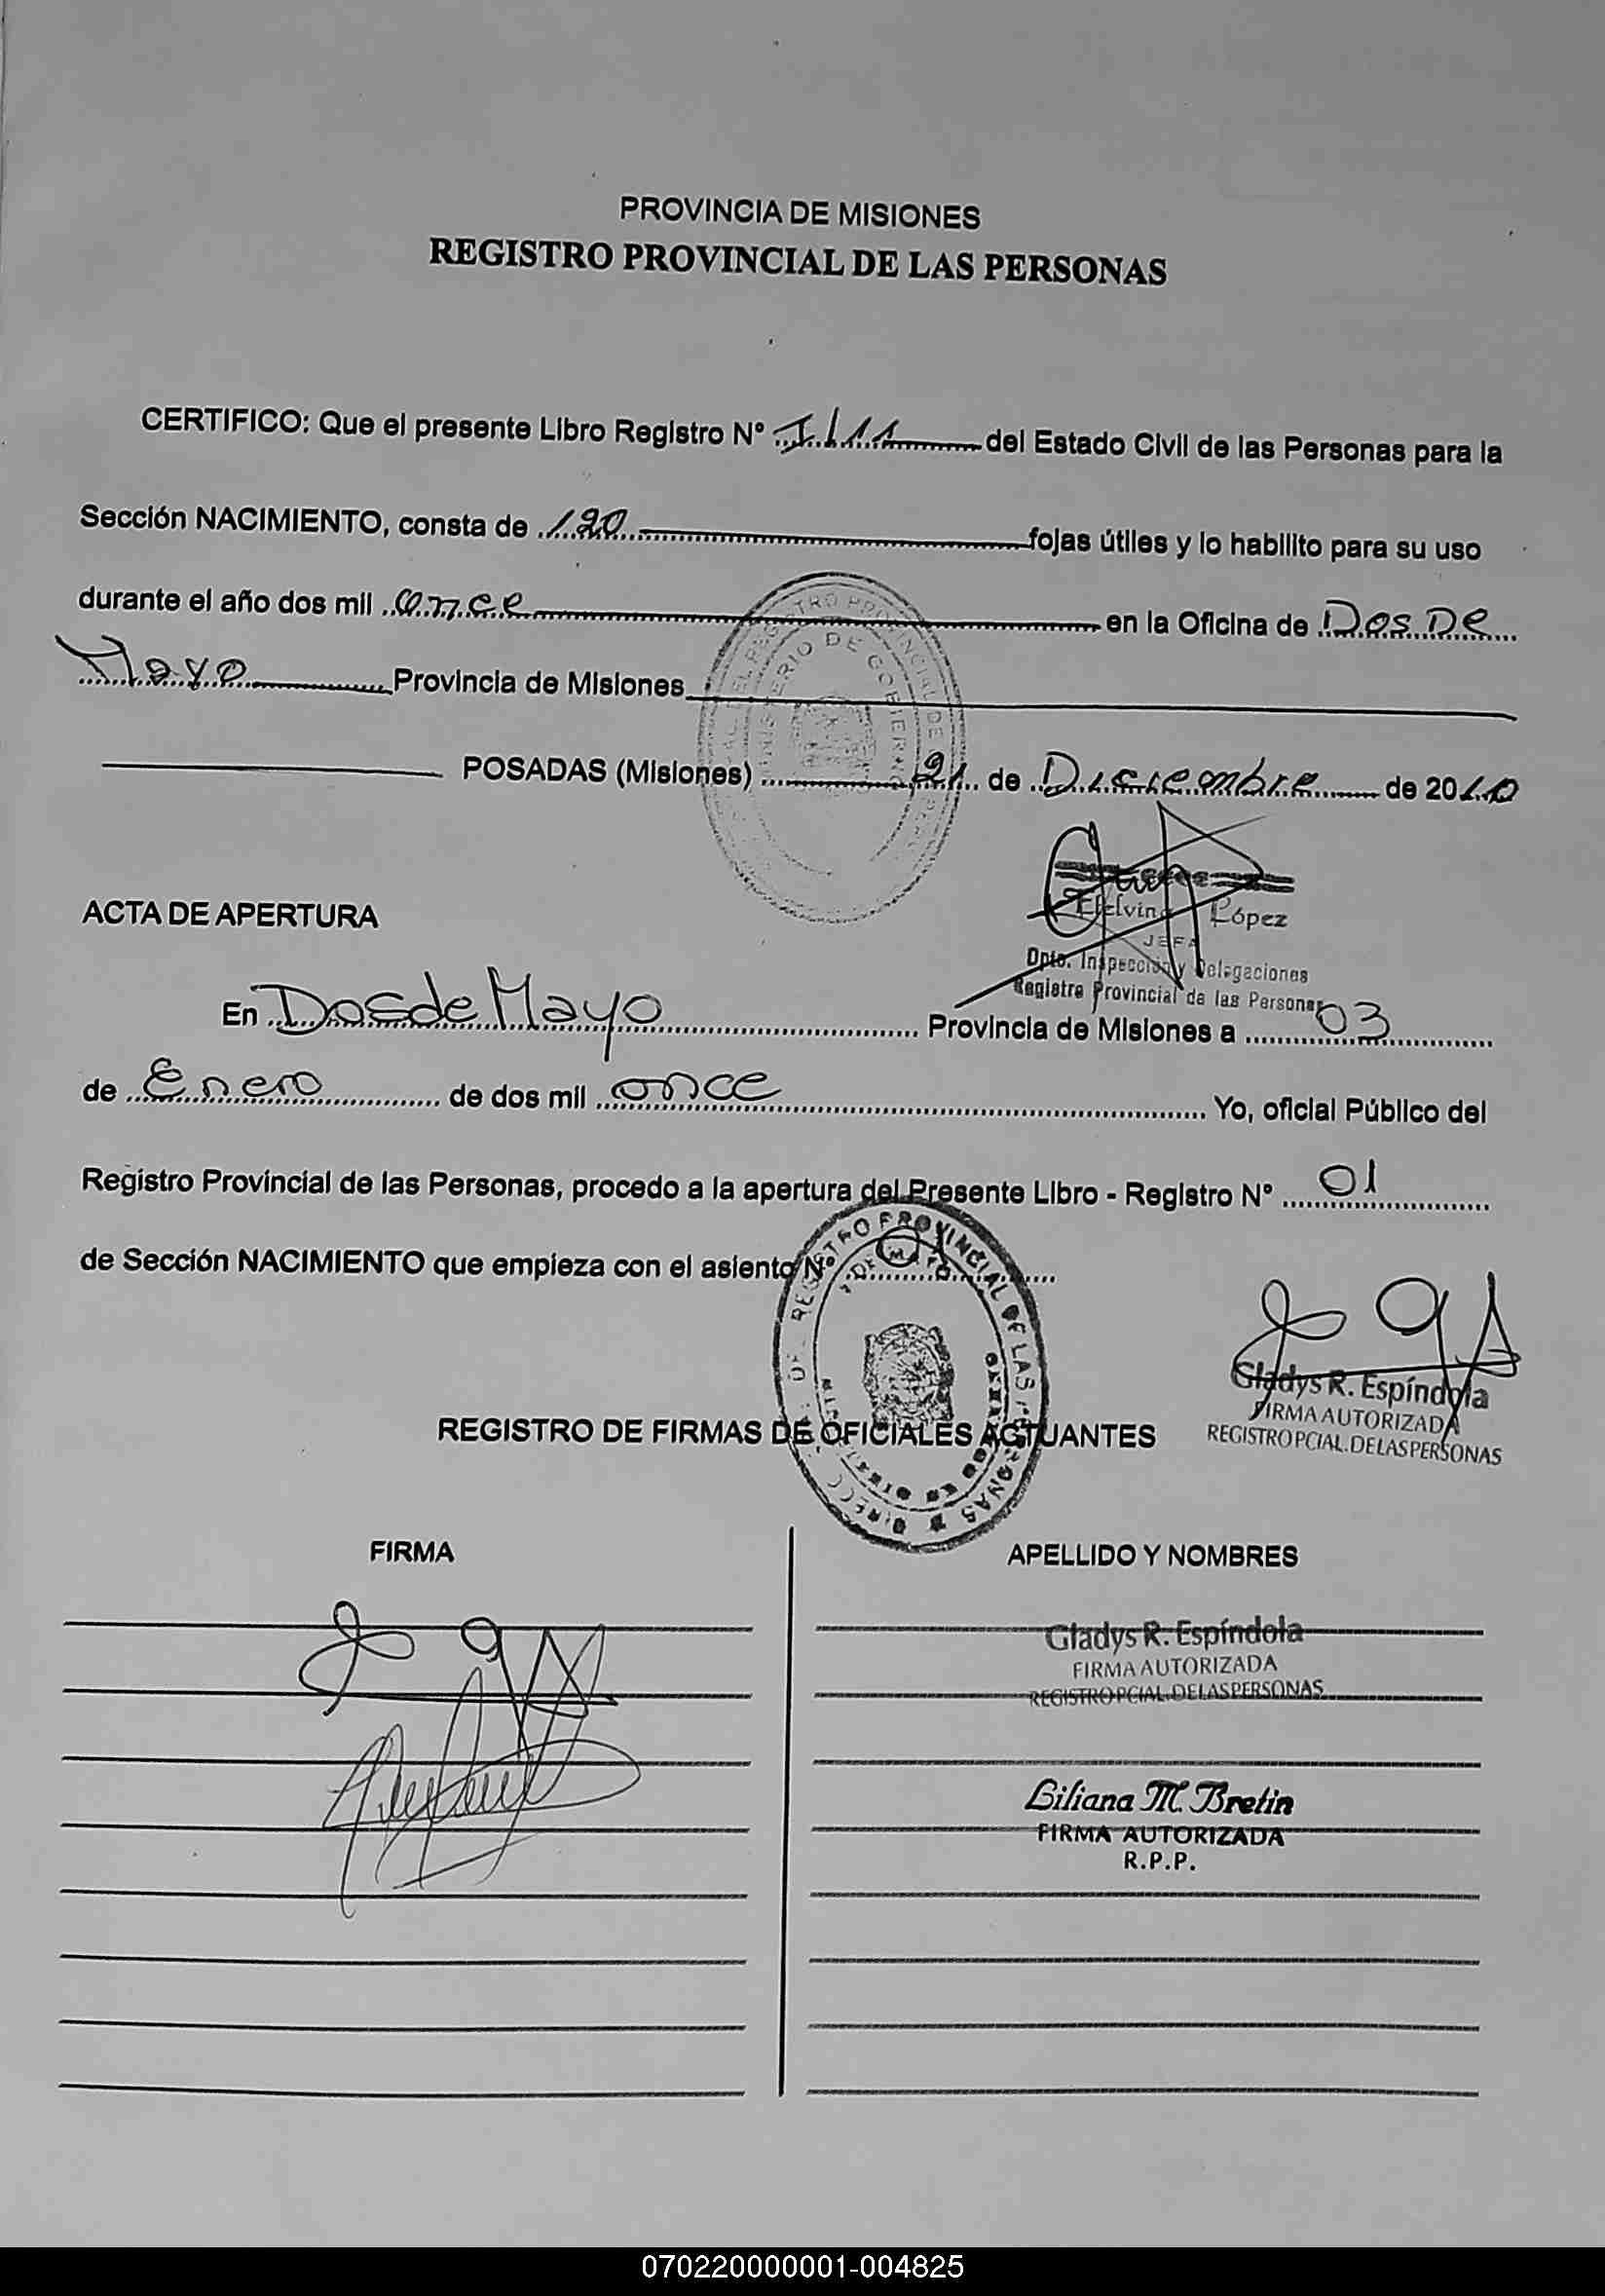 PROVINCIA DE MISIONES
REGISTRO PROVINCIAL DE LAS PERSONAS
CERTIFICO: Que el presente Libro Registro Nº I/11 del Estado Civil de las Personas para la
Sección NACIMIENTO, consta de 120 fojas útiles y lo habilito para su uso
durante el año dos mil once en la Oficina de Dos De
Mayo Provincia de Misiones
POSADAS (Misiones) 21 de Diciembre de 2010
López
JEFA
Dpto. Inspección y Delegaciones
Registro Provincial de las Personas
ACTA DE APERTURA
En Dos de Mayo Provincia de Misiones a 03
de Enero de dos mil once Yo, oficial Público del
Registro Provincial de las Personas, procedo a la apertura del Presente Libro - Registro Nº 01
de Sección NACIMIENTO que empieza con el asiento Nº 01
Gladys R. Espíndola
FIRMA AUTORIZADA
REGISTRO PCIAL. DE LAS PERSONAS
REGISTRO DE FIRMAS DE OFICIALES ACTUANTES
FIRMA APELLIDO Y NOMBRES
Gladys R. Espíndola
FIRMA AUTORIZADA
REGISTRO PCIAL. DE LAS PERSONAS
Liliana M. Bretin
FIRMA AUTORIZADA
R.P.P.
070220000001-004825